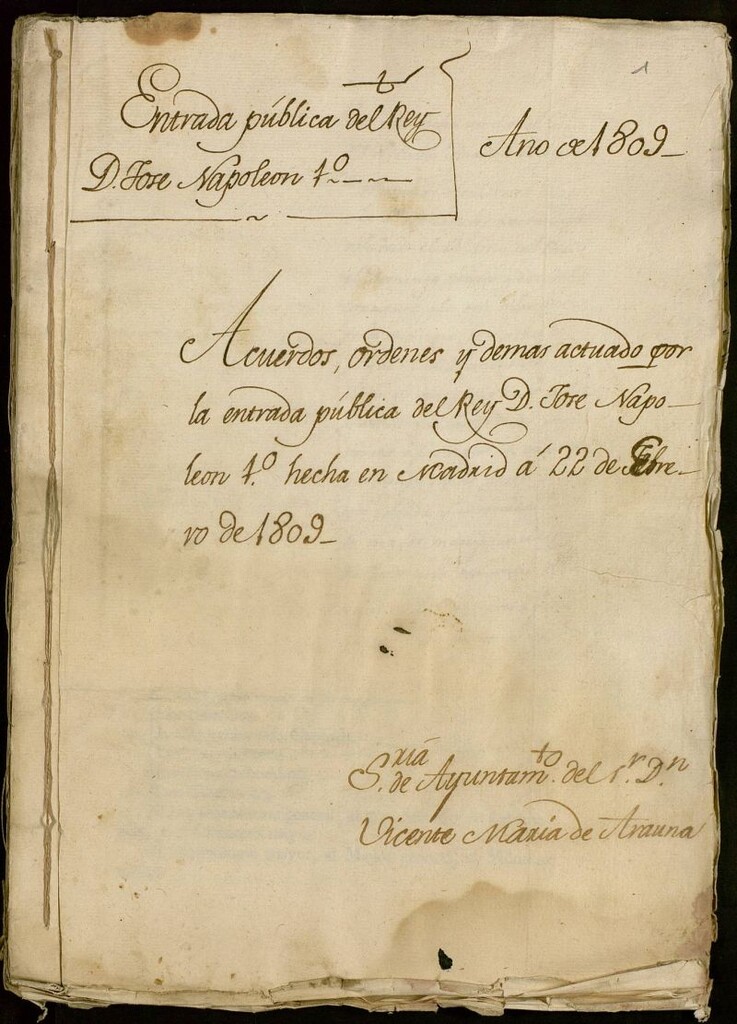 1
Entrada pública del Rey
D. Jose Napoleon 1.º
Año de 1809
Acuerdos, ordenes y demas actuado por
la entrada pública del Rey D. Jose Napo-
leon 1.º hecha en Madrid á 22 de Febre-
ro de 1809
S.ría de Ayuntam.to del S.r D.n
Vicente Maria de Arauna